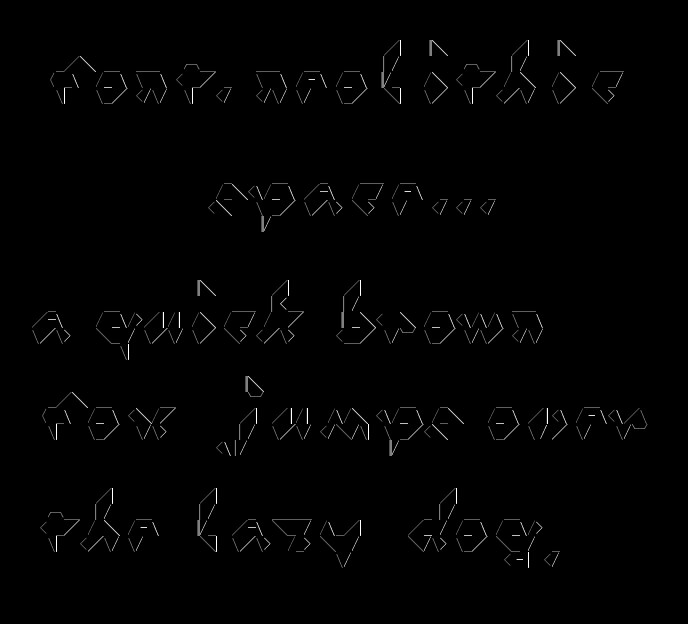 font. neolithic
space...
a quick brown
fox jumps over
the lazy dog.